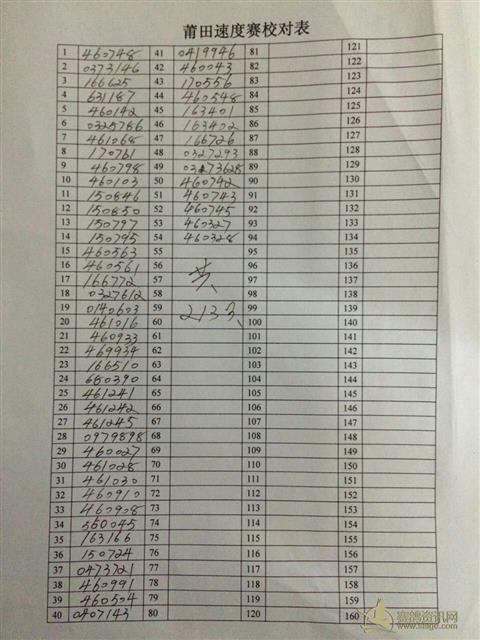 莆田速度赛校对表
1 460748 41 0419946 81 121
2 0373146 42 460043 82 122
3 166625 43 170556 83 123
4 631187 44 460548 84 124
5 460142 45 163401 85 125
6 0325786 46 163402 86 126
7 461068 47 166726 87 127
8 170761 48 0327293 88 128
9 460798 49 89 129
10 460103 50 460742 90 130
11 150846 51 460743 91 131
12 150850 52 460745 92 132
13 150797 53 460327 93 133
14 150795 54 460328 94 134
15 460563 55 95 135
16 460561 56 共 96 136
17 166772 57 97 137
18 0327612 58 98 138
19 0140603 59 213只 99 139
20 461016 60 100 140
21 460933 61 101 141
22 469934 62 102 142
23 166510 63 103 143
24 680390 64 104 144
25 461241 65 105 145
26 461242 66 106 146
27 461245 67 107 147
28 0979898 68 108 148
29 460027 69 109 149
30 461028 70 110 150
31 461030 71 111 151
32 460910 72 112 152
33 460908 73 113 153
34 560045 74 114 154
35 163166 75 115 155
36 150724 76 116 156
37 0473721 77 117 157
38 460991 78 118 158
39 460504 79 119 159
40 0407143 80 120 160
赛鸽资讯网